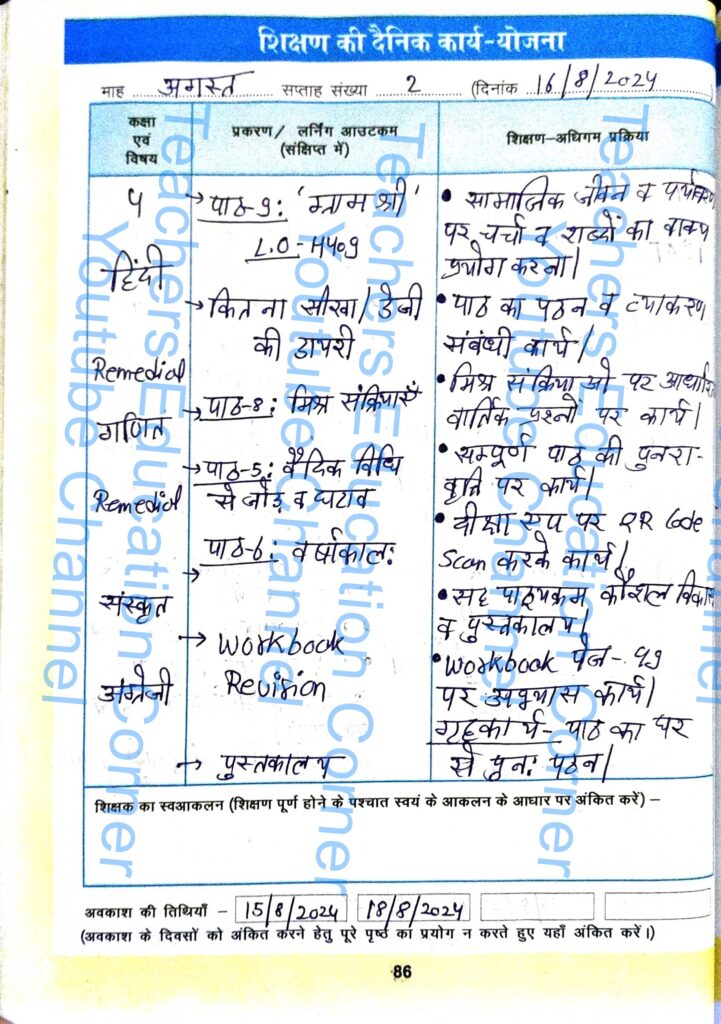 शिक्षण की दैनिक कार्य-योजना
माह अगस्त सप्ताह संख्या 2 (दिनांक 16/8/2024
कक्षा एवं विषय
प्रकरण/ लर्निंग आउटकम (संक्षिप्त में)
शिक्षण-अधिगम प्रक्रिया
५
हिंदी
Remedial
गणित
Remedial
संस्कृत
अंग्रेजी
→ पाठ-9: 'ग्राम श्री'
L.O-H509
→ कितना सीखा/डेजी
की डायरी
→ पाठ-8: मिश्र संक्रियाएँ
→ पाठ-5: वैदिक विधि
से जोड़ व घटाव
पाठ-6: वर्षाकाल:
→
→ Workbook
Revision
→ पुस्तकालय
• सामाजिक जीवन व पर्यावरण
पर चर्चा व शब्दों का वाक्य
प्रयोग करना।
• पाठ का पठन व व्याकरण
संबंधी कार्य।
• मिश्र संक्रियाओ पर आधारित
वार्तिक प्रश्नों पर कार्य।
• सम्पूर्ण पाठ की पुनरा-
वृत्ति पर कार्य।
• दीक्षा एप पर QR Code
Scan करके कार्य।
• सह पाठ्यक्रम कौशल विकास
व पुस्तकालय।
• Workbook पेज- ५९
पर अभ्यास कार्य।
गृहकार्य- पाठ का घर
से पुन: पठन।
शिक्षक का स्वआकलन (शिक्षण पूर्ण होने के पश्चात स्वयं के आकलन के आधार पर अंकित करें) –
अवकाश की तिथियाँ – 15/8/2024 18/8/2024
(अवकाश के दिवसों को अंकित करने हेतु पूरे पृष्ठ का प्रयोग न करते हुए यहाँ अंकित करें।)
86
Teachers Education Corner
Youtube Channel
Teachers Education Corner
Youtube Channel
Teachers Education Corner
Youtube Channel